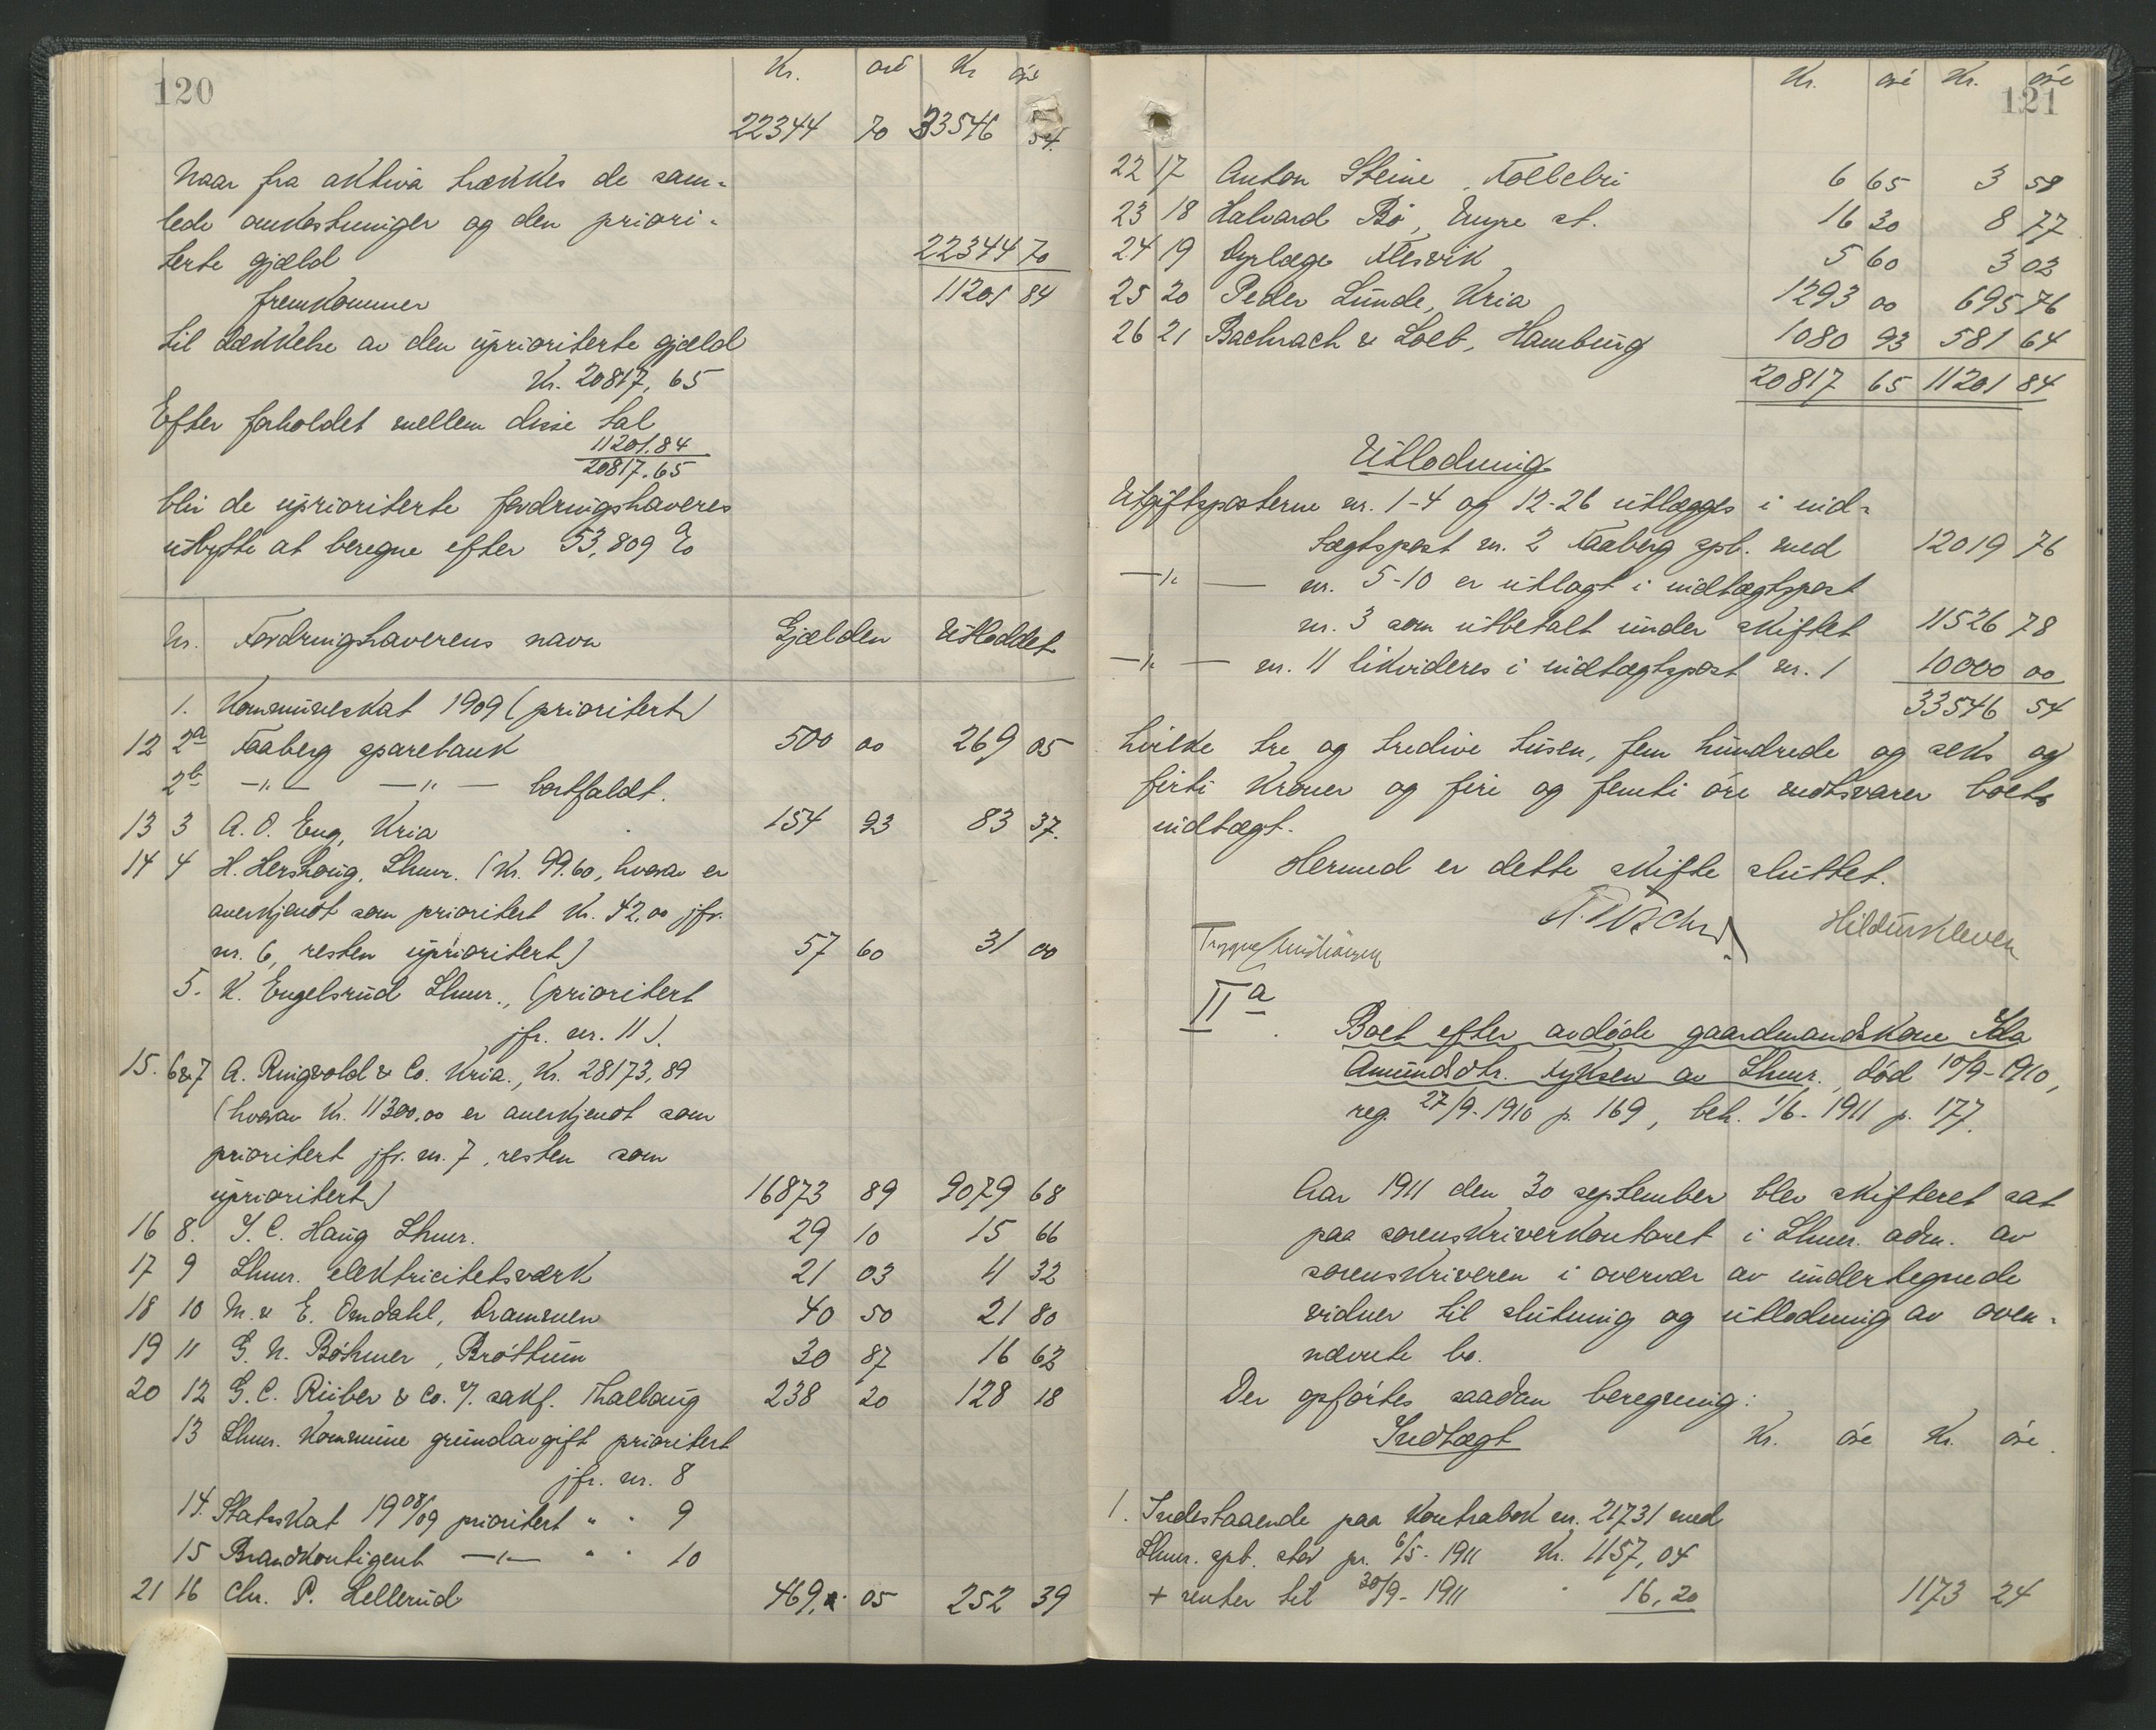 120
Kr. øre Kr øre
22344 70 33546 54.
Naar fra aktiva trækkes de sam-
lede omkostninger og den priori-
terte gjæld 22344 70
fremkommer 11201 84
til dækkelse av den uprioriterte gjæld
Kr. 20817,65
Efter forholdet mellem disse tal
11201.84
20817.65
blir de uprioriterte fordringshaveres
utbytte at beregne efter 53,809 %
Nr. Fordringshaverens navn Gjælden Utloddet
1. Kommuneskat 1909 (prioritert)
12 2a Faaberg sparebank 500 00 269 05
2b -"- -"- bortfaldt.
13 3 A. O. Eng, Kria 154 93 83 37.
14 4 H. Hershoug, Lhmr. (Kr. 99.60, hvorav er
anerkjendt som prioritert Kr. 42,00 jfr.
nr. 6, resten uprioritert) 57 60 31 00
5. K. Engelsrud Lhmr., (prioritert
jfr. nr. 11).
15. 6&7 A. Ringvold & Co. Kria., Kr. 28173,89
(hvorav Kr. 11300,00 er anerkjendt som
prioritert jfr. nr. 7, resten som
uprioritert) 16873 89 9079 68
16 8. I. C. Haug Lhmr. 29 10 15 66
17 9 Lhmr. elektricitetsværk 21 03 11 32
18 10 M. & E. Omdahl, Drammen 40 50 21 80
19 11 G. N. Böhmer, Brøttum 30 87 16 62
20 12 G. C. Rieber & Co. v/. sakf. Thallaug 238 20 128 18
13 Lhmr. Kommune grundavgift prioritert
jfr. nr. 8
14. Statsskat 1908/09 prioritert " " 9
15 Brandkontigent -"- " " 10
21 16 Chr. P. Lellerud 469, 05 252 39
121
Kr. øre Kr. øre
22 17 Anton Steine, Follebu 6 65 3 58
23 18 Halvard Bø, Vinger st. 16 30 8 77
24 19 Dyrlæge Flesvik 5 60 3 02
25 20 Peder Lunde, Kria 1293 00 695 76
26 21 Bachrach & Loeb, Hamburg 1080 93 581 64
20817 65 11201 84
Utlodning
Utgiftsposterne nr. 1-4 og 12-26 utlægges i ind-
tægtspost nr. 2 Faaberg spb. med 12019 76
-"- nr. 5-10 er utlagt i indtægtspost
nr. 3 som utbetalt under skiftet 11526 78
-"- nr. 11 likvideres i indtægtspost nr. 1 10000 00
33546 54
hvilke tre og tredive tusen, fem hundrede og seks og
firti kroner og firi og femti øre motsvarer boets
indtægt.
Hermed er dette skifte sluttet.
Hildur Kleven
Trygve Christiansen
IIa
Boet efter avdøde gaardmandskone Ida
Amundsdtr. Lyksen av Lhmr., død 10/9-1910,
reg. 27/9-1910 p. 169, beh. 1/6-1911 p. 177.
Aar 1911 den 30 september blev skifteret sat
paa sorenskriverkontoret i Lhmr. adm. av
sorenskriveren i overvær av undertegnede
vidner til slutning og utlodning av oven-
nævnte bo.
Der opførtes saadan beregning:
Indtægt Kr. øre Kr. øre.
1. Indestaaende paa Kontrabok nr. 21731 med
Lhmr. spb. stor pr. 6/5-1911 Kr. 1157,04
+ renter til 30/9-1911 " 16,20 1173 24